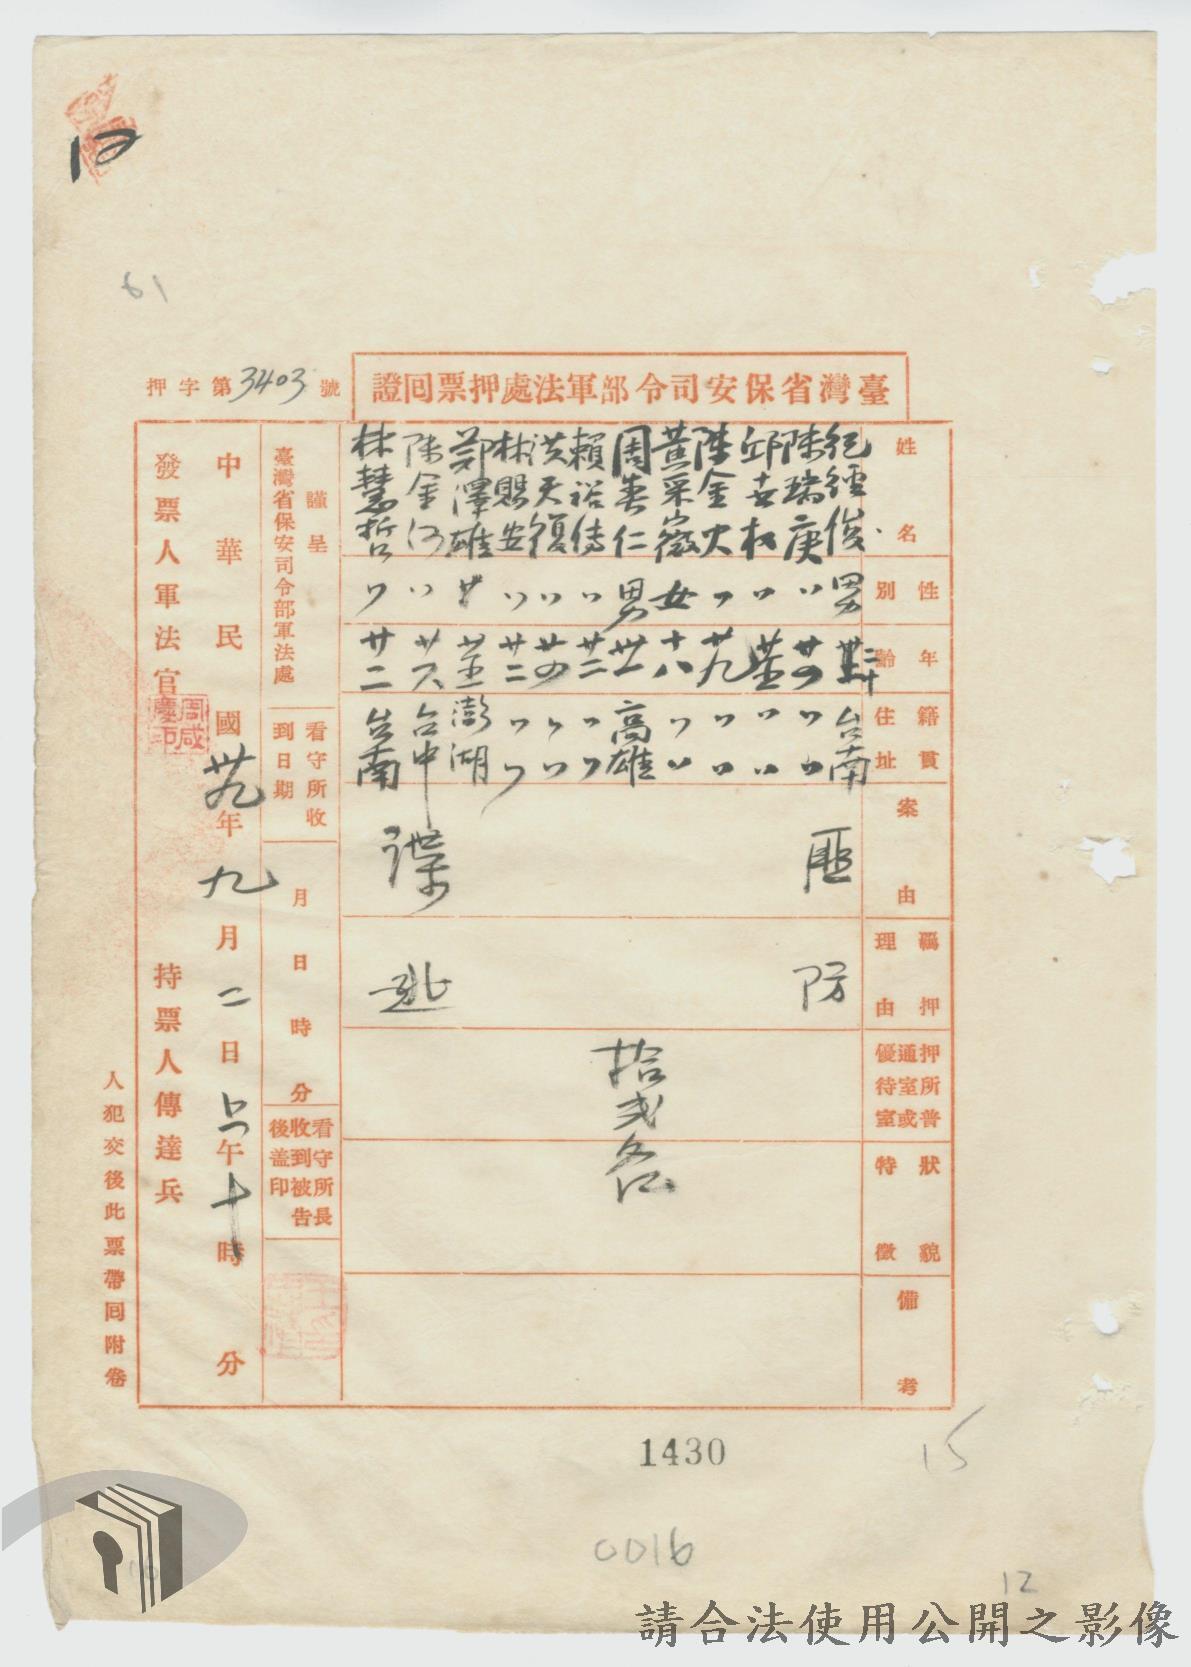 押字第3403號
臺灣省保安司令部軍法處押票回證
姓名
性別
年齡
籍貫住址
案由
羈押理由
押所普通室或優待室
狀貌特徵
備考
紀經俊 男 台南
陳瑞庚 〃 廿四 〃〃
邱世 〃 〃〃
陳金火 〃 廿九 〃〃
黃采薇 女 十八 〃〃
周春仁 男 卅一 高雄
賴裕傳 〃 廿二 〃〃
洪天復 〃 廿四 〃〃
林賜安 〃 廿二 〃〃
鄭澤雄 澎湖
陳金河 〃 廿六 台中
林慧哲 〃 廿二 台南
匪諜
防逃
拾弍名
謹呈
臺灣省保安司令部軍法處
看守所收到日期
月日時分
看守所長收到被告後盖印
中華民國卅九年九月二日上午十時分
發票人軍法官
周咸慶印
持票人傳達兵
人犯交後此票帶回附卷
12
61
1430
15
0016
12
請合法使用公開之影像